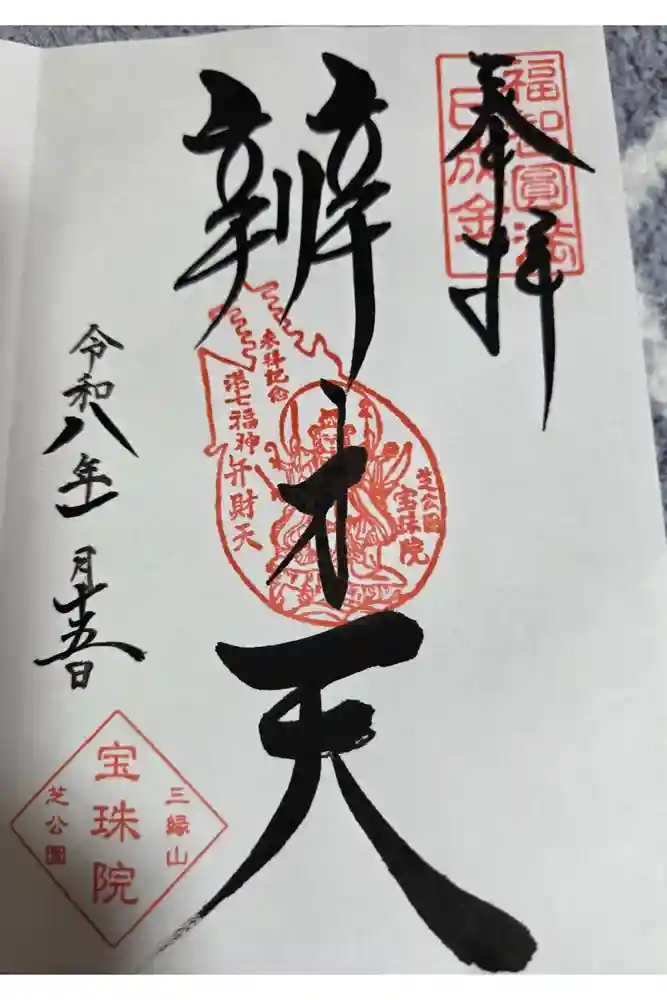 奉拝
福智圓満
日成金
辨才天
参拝記念
港七福神弁財天
芝公園
宝珠院
令和八年一月十五日
三縁山
宝珠院
芝公園